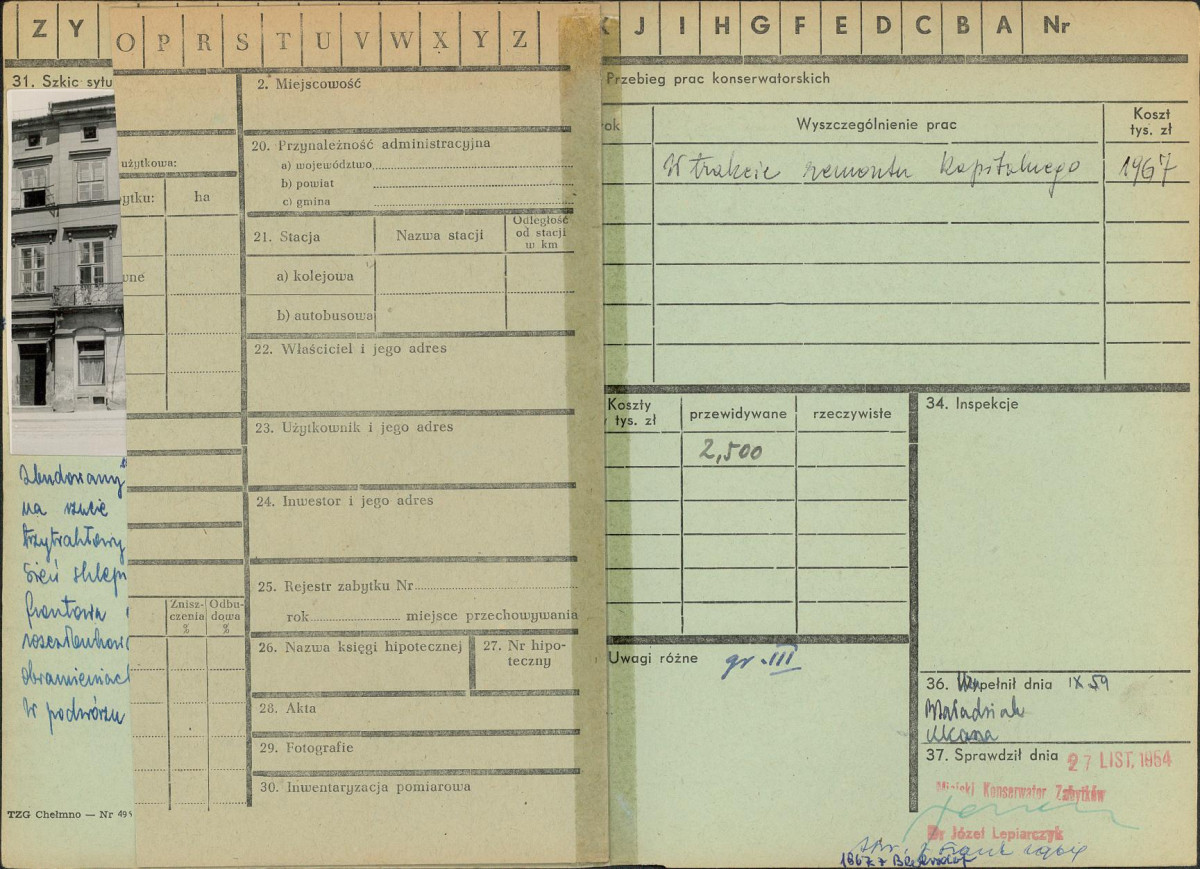 Z Y
O P R S T U V W X Y Z
K J I H G F E D C B A Nr
31. Szkic sytu
Zbudowany
na rzucie
trzytraktowy
Sień sklep
frontowa
W podwórzu
TZG Chełmno — Nr 49
użytkowa:
ytku: ha
wne
Znisz-
czenia
%
Odbu-
dowa
%
2. Miejscowość
20. Przynależność administracyjna
a) województwo
b) powiat
c) gmina
21. Stacja
Nazwa stacji
Odległość
od stacji
w km
a) kolejowa
b) autobusowa
22. Właściciel i jego adres
23. Użytkownik i jego adres
24. Inwestor i jego adres
25. Rejestr zabytku Nr
rok miejsce przechowywania
26. Nazwa księgi hipotecznej
27. Nr hipo-
teczny
28. Akta
29. Fotografie
30. Inwentaryzacja pomiarowa
Przebieg prac konserwatorskich
ok
Wyszczególnienie prac
Koszt
tys. zł
W trakcie remontu kapitalnego 1967
Koszty
tys. zł
przewidywane
rzeczywiste
2,500
Uwagi różne gr. III
34. Inspekcje
36. Wypełnił dnia IX 59
37. Sprawdził dnia 27 LIST. 1964
Miejski Konserwator Zabytków
Dr Józef Lepiarczyk